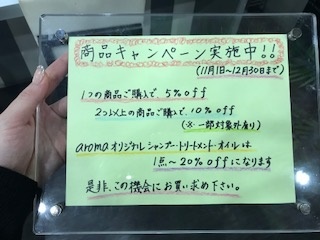 商品キャンペーン実施中!!
(11月1日~12月30日まで)
1つの商品ご購入で 5%off
2つ以上の商品ご購入で 10%off
(※一部対象外有り)
aromaオリジナルシャンプー・トリートメント・オイルは
1点~20%offになります
是非、この機会にお買い求め下さい。